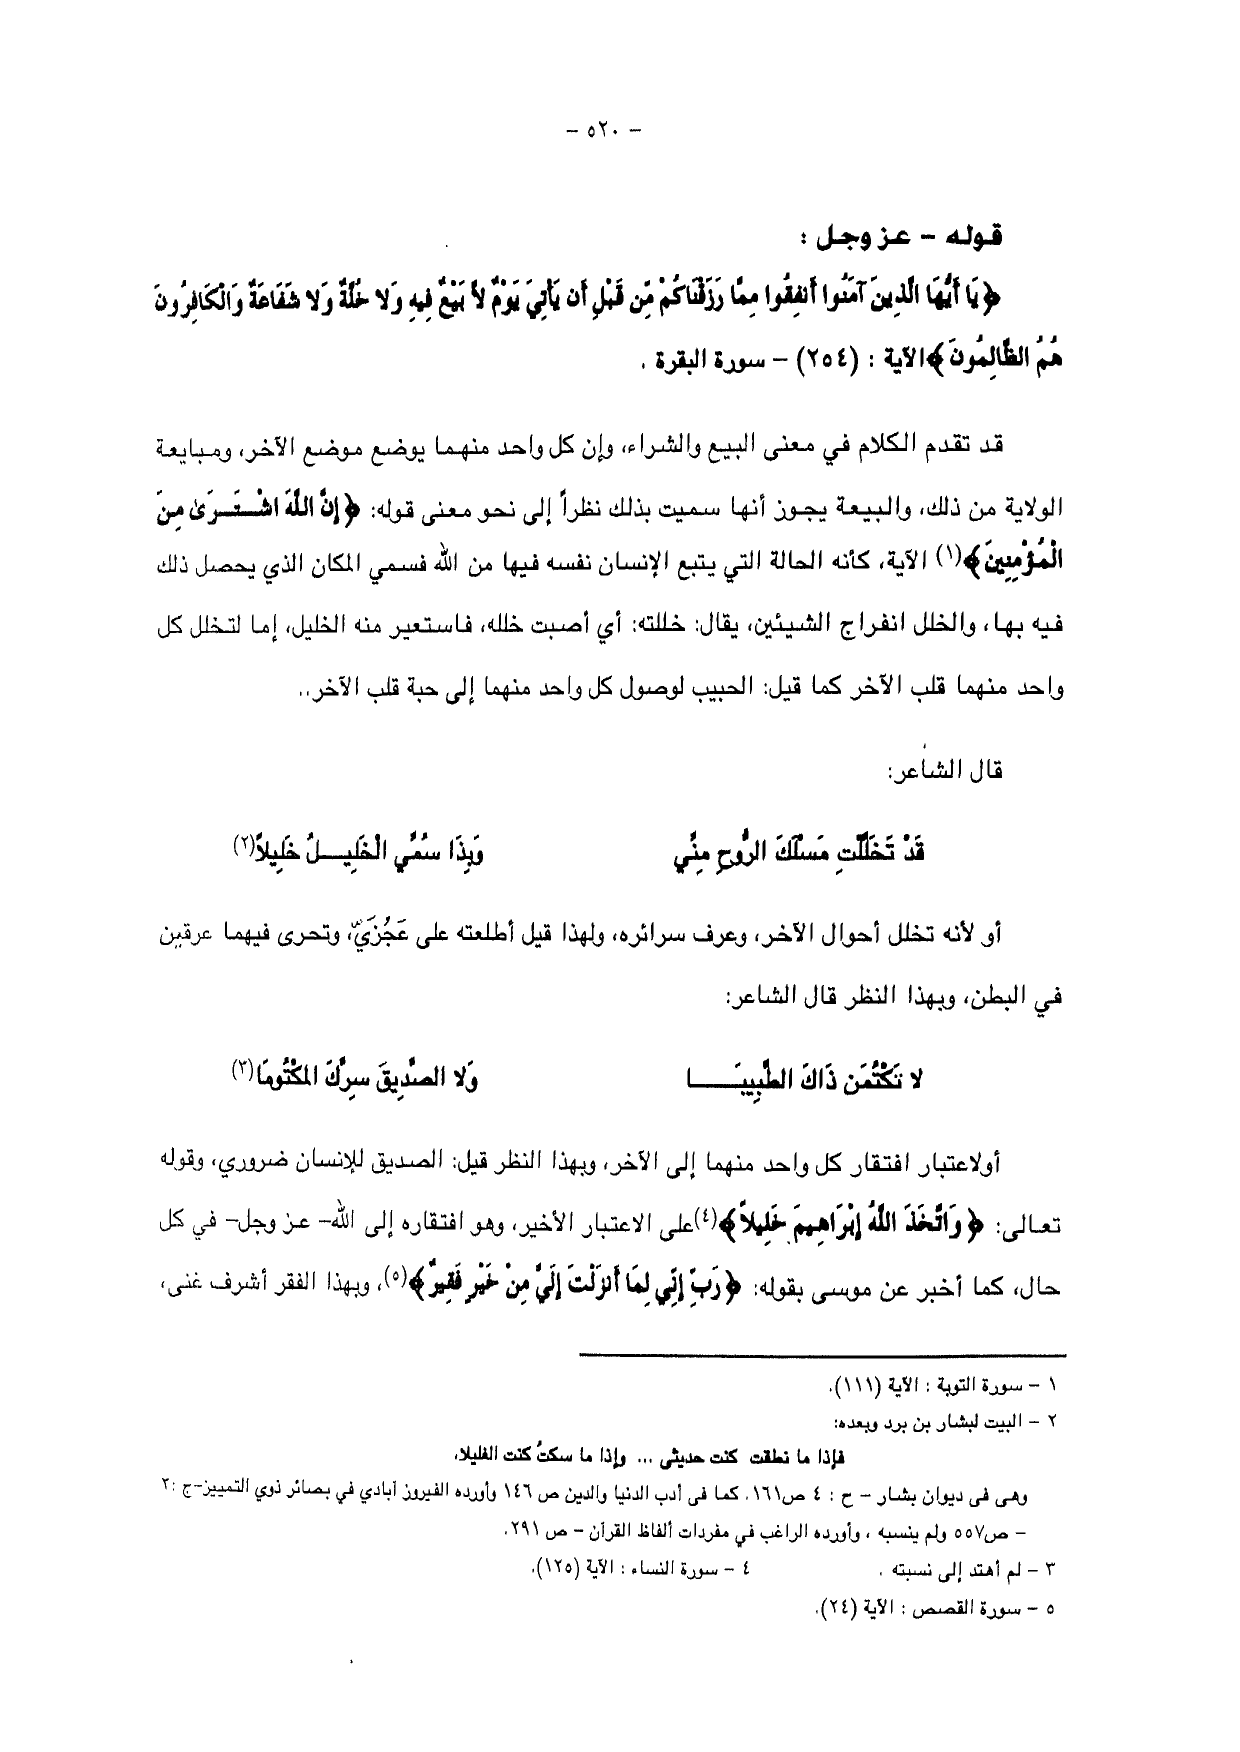 - ٥٢٠ -
قوله - عز وجل :
﴿يَا أَيُّهَا الَّذِينَ آمَنُوا أَنفِقُوا مِمَّا رَزَقْنَاكُمْ مِّن قَبْلِ أَن يَأْتِيَ يَوْمٌ لاَّ بَيْعٌ فِيهِ وَلا خُلَّةٌ وَلا شَفَاعَةٌ وَالْكَافِرُونَ
هُمُ الظَّالِمُونَ﴾الآية : (٢٥٤) - سورة البقرة .
قد تقدم الكلام في معنى البيع والشراء، وإن كل واحد منهما يوضع موضع الآخر، ومبايعة
الولاية من ذلك، والبيعة يجوز أنها سميت بذلك نظراً إلى نحو معنى قوله: ﴿إِنَّ اللَّهَ اشْتَرَىٰ مِنَ
الْمُؤْمِنِينَ﴾(١) الآية، كأنه الحالة التي يتبع الإنسان نفسه فيها من الله فسمي المكان الذي يحصل ذلك
فيه بها، والخلل انفراج الشيئين، يقال: خللته: أي أصبت خلله، فاستعير منه الخليل، إما لتخلل كل
واحد منهما قلب الآخر كما قيل: الحبيب لوصول كل واحد منهما إلى حبة قلب الآخر..
قال الشاعر:
قَدْ تَخَلَّلَتِ مَسْلَكَ الرُّوحِ مِنِّي وَبِذَا سُمِّي الْخَلِيلُ خَلِيلاً(٢)
أو لأنه تخلل أحوال الآخر، وعرف سرائره، ولهذا قيل أطلعته على عَجُزَيِّ، وتحرى فيهما عرقين
في البطن، وبهذا النظر قال الشاعر:
لا تَكْتُمَن ذَاكَ الطَّبِيبَا وَلا الصَّدِيقَ سِرَّكَ المَكْتُومَا(٣)
أولاعتبار افتقار كل واحد منهما إلى الآخر، وبهذا النظر قيل: الصديق للإنسان ضروري، وقوله
تعالى: ﴿وَاتَّخَذَ اللَّهُ إِبْرَاهِيمَ خَلِيلاً﴾(٤)على الاعتبار الأخير، وهو افتقاره إلى الله- عز وجل- في كل
حال، كما أخبر عن موسى بقوله: ﴿رَبِّ إِنِّي لِمَا أَنزَلْتَ إِلَيَّ مِنْ خَيْرٍ فَقِيرٌ﴾(٥)، وبهذا الفقر أشرف غنى،
١ - سورة التوبة : الآية (١١١).
٢ - البيت لبشار بن برد وبعده:
فإذا ما نطقت كنت حديثى ... وإذا ما سكتُ كنت الغليلا.
وهى فى ديوان بشار - ح : ٤ ص١٦١. كما فى أدب الدنيا والدين ص ١٤٦ وأورده الفيروز آبادي في بصائر ذوي التمييز-ج :٢
- ص٥٥٧ ولم ينسبه ، وأورده الراغب في مفردات ألفاظ القرآن - ص ٢٩١.
٣ - لم أهتد إلى نسبته . ٤ - سورة النساء : الآية (١٢٥).
٥ - سورة القصص : الآية (٢٤).